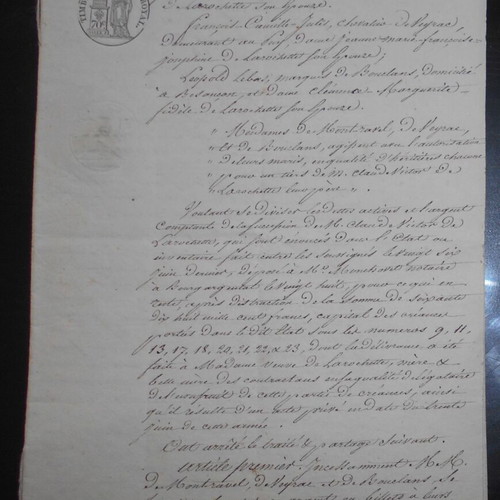 TIMBRE ROYAL
de Larochette son Epouse
François-Camille-Jules, Chevalier De Veyrac
demeurant au Puy, dame Jeanne-marie-françoise-
joséphine de Larochette son Epouse;
Léopold Marquis de Bouclans, domicilié
à Besançon, et dame Clémence Marguerite-
fidèle de Larochette son Epouse.
" Mesdames de Montravel, de Veyrac,
" et de Bouclans, agissent sous l'autorisation
" de leurs maris, en qualité d'héritières chacune
" pour un tiers de M. Claude Victor de
" Larochette leur père ".
Voulant se diviser les dettes actives et l'argent
comptant de la succession de M. Claude Victor de
Larochette, qui sont énoncés dans l'Etat ou
inventaire fait entre les soussignés le vingt six
juin dernier, déposé à Me notaire
à Bourgargental le vingt huit, pour ce qui en
reste, après distraction de la somme de soixante
dix huit mille cent francs, capital des créances
portées dans le dit Etat sous les numéros 9, 11,
13, 17, 18, 20, 21, 22 & 23, dont la délivrance a été
faite à Madame Veuve de Larochette, mère &
belle mère des contractans en sa qualité de légataire
de l'usufruit de cette partie de créances, ainsi
qu'il résulte d'un acte privé en date du trente
juin de cette année.
Ont arrêté le traité & partage suivant.
article premier. Incessamment M. M.
de Montravel, de Veyrac et de Bouclans se